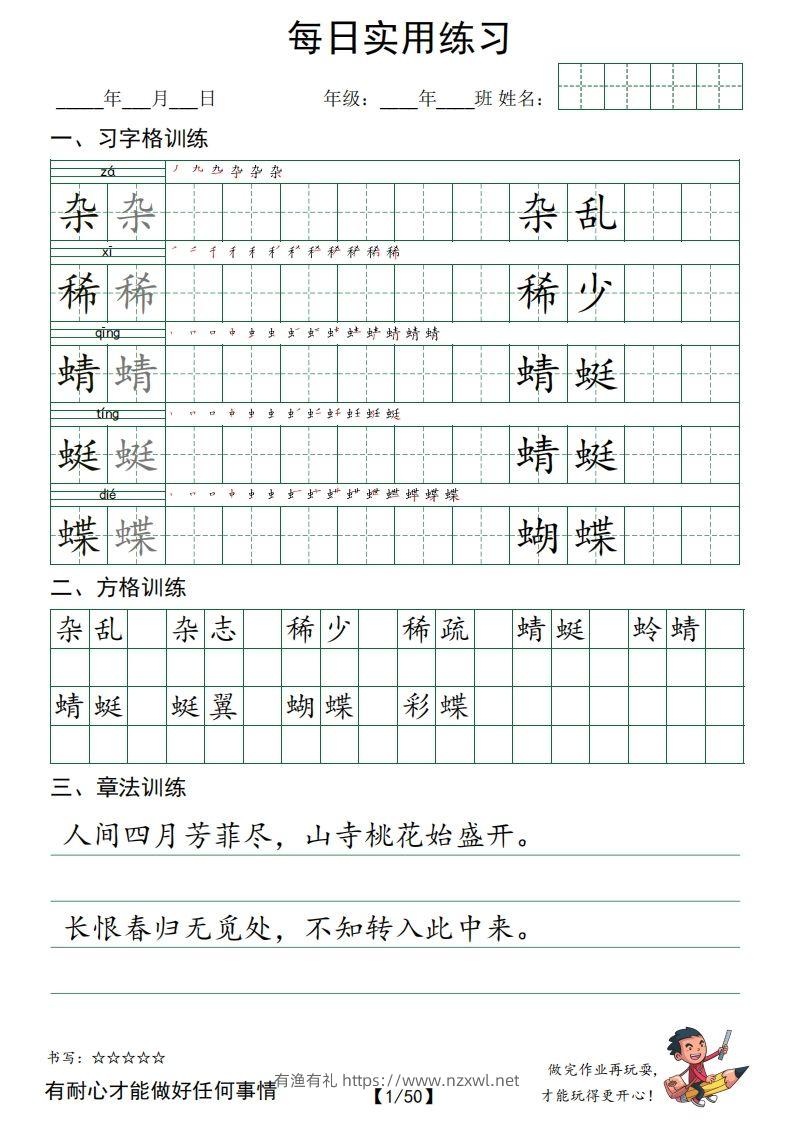 每日实用练习
_____年___月___日 年级：____年____班 姓名：
一、习字格训练
zá
杂 杂 杂 乱
xī
稀 稀 稀 少
qīng
蜻 蜻 蜻 蜓
tíng
蜓 蜓 蜻 蜓
dié
蝶 蝶 蝴 蝶
二、方格训练
杂 乱 杂 志 稀 少 稀 疏 蜻 蜓 蛉 蜻
蜻 蜓 蜓 翼 蝴 蝶 彩 蝶
三、章法训练
人间四月芳菲尽，山寺桃花始盛开。
长恨春归无觅处，不知转入此中来。
书写：☆☆☆☆☆
有耐心才能做好任何事情
有渔有礼 https://www.nzxwl.net
【1/50】
做完作业再玩耍，
才能玩得更开心！